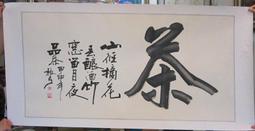 茶
山徑摘花
春釀酒竹
窗留月夜
品茶 甲申年